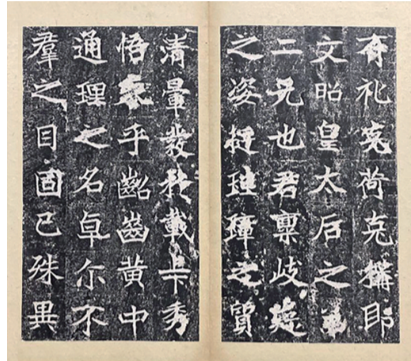 有礼克荷克構即
文昭皇太后之
二兄也君稟岐嶷
之姿挺珪璋之質
清暈發於載卡秀
悟乎齠齒黄中
通理之名卓尓不
羣之目固已殊異